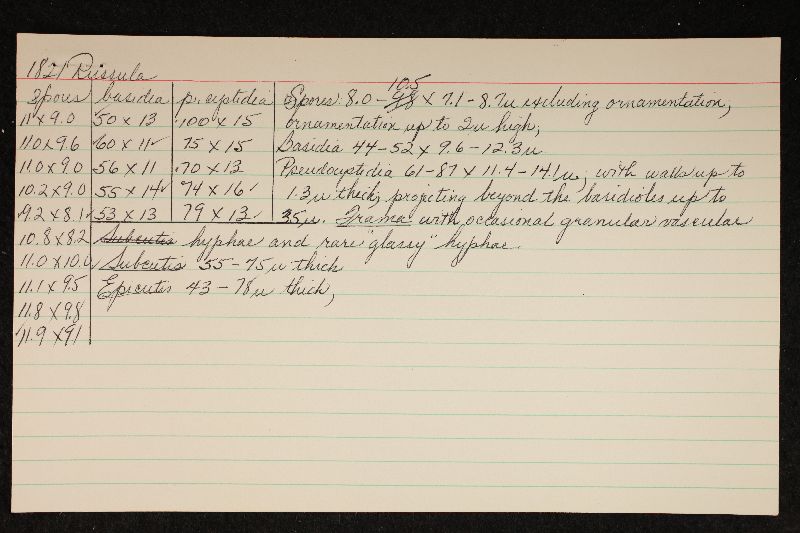 1821 Russula
spores basidia p. cystidia Spores 8.0 - 10.5 x 7.1 - 8.7u excluding ornamentation,
11 x 9.0 50 x 13 100 x 15 ornamentation up to 2u high,
11.0 x 9.6 60 x 11 75 x 15 basidia 44 - 52 x 9.6 - 12.3u
11.0 x 9.0 56 x 11 70 x 13 Pseudocystidia 61 - 87 x 11.4 - 14.1u, with walls up to
10.2 x 9.0 55 x 14✓ 74 x 16✓ 1.3u thick, projecting beyond the basidioles up to
9.2 x 8.1✓ 53 x 13 79 x 13✓ 35u. Trama with occasional granular vascular
10.8 x 8.2 Subcutis hyphae and rare "glassy" hyphae.
11.0 x 10.0 Subcutis 55 - 75u thick
11.1 x 9.5 Epicutis 43 - 78u thick,
11.8 x 9.8
11.9 x 9.1